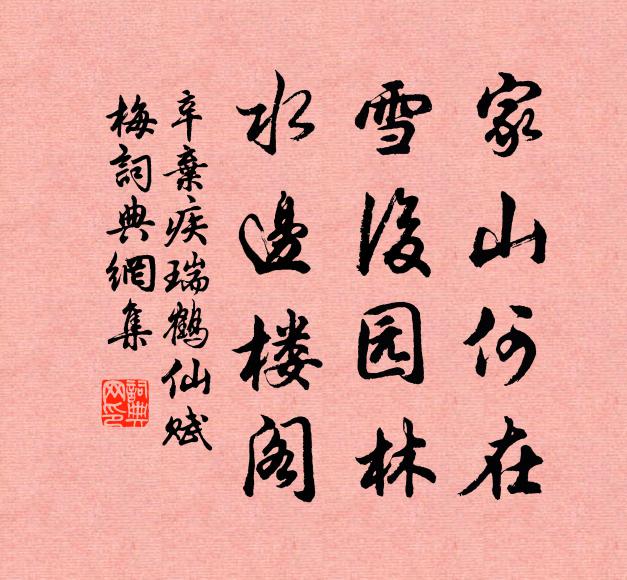 家山何在
雪後园林
水邊楼阁
辛棄疾瑞鶴仙赋
梅詞典網集
詞典
网印